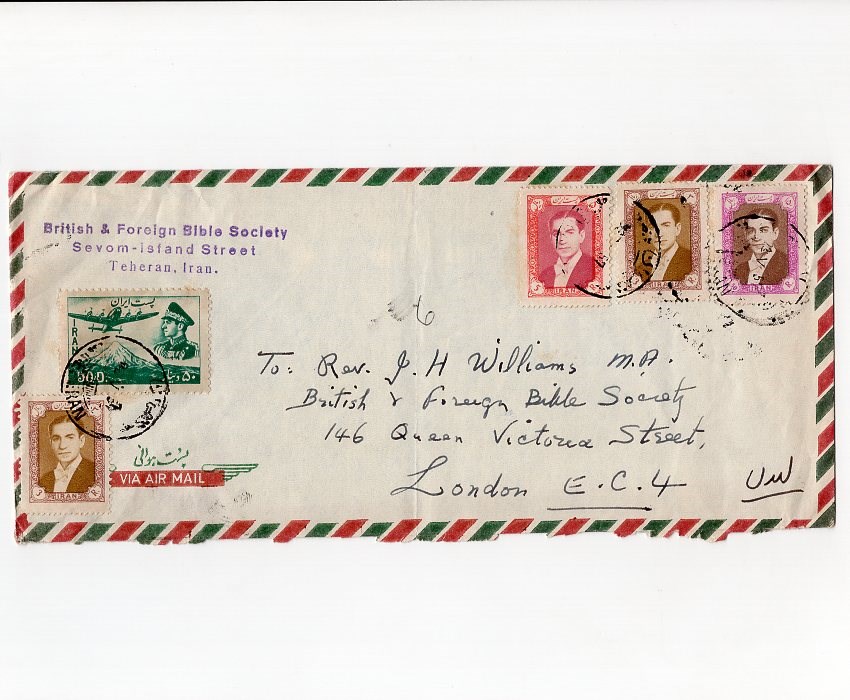 British & Foreign Bible Society
Sevom-Island Street
Teheran, Iran.
پست ایران
IRAN
50D.
۵۰
IRAN
IRAN
IRAN
6
To: Rev. J. H Williams M.A.
British & Foreign Bible Society
146 Queen Victoria Street,
London E.C.4
UW
IRAN
پست هوائی
VIA AIR MAIL